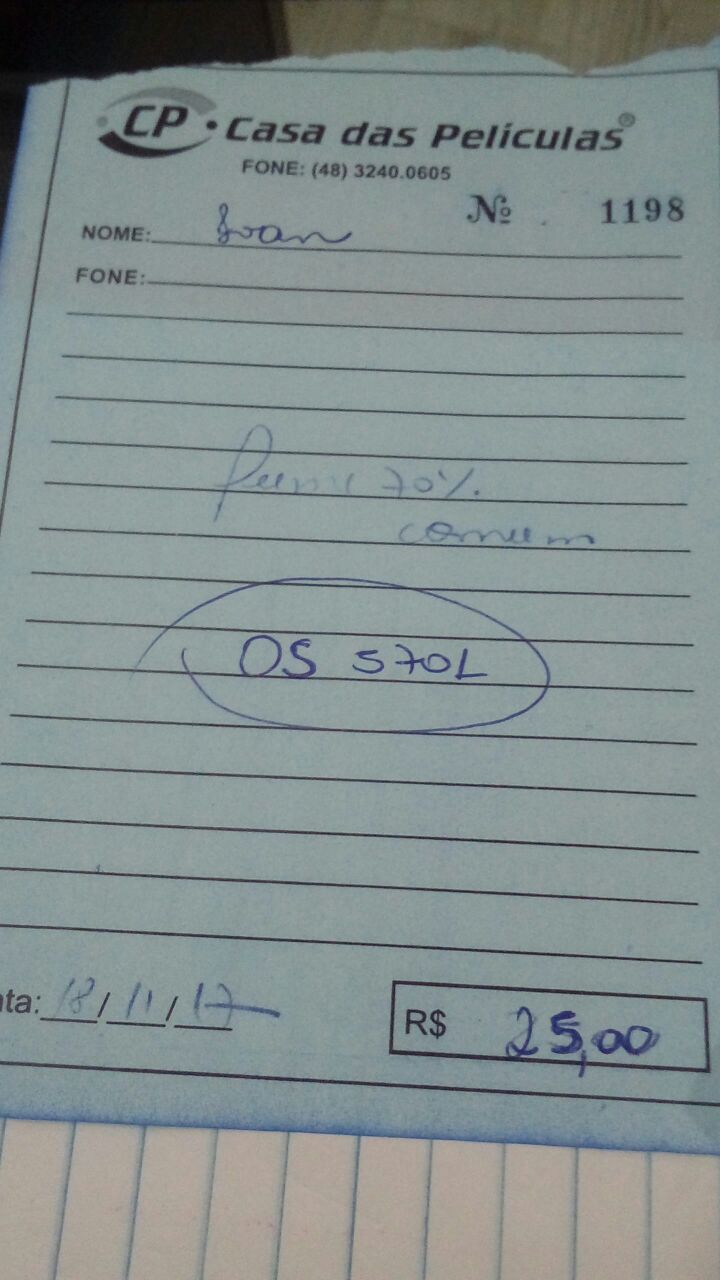 CP • Casa das Películas®
FONE: (48) 3240.0605
Nº 1198
NOME: Ivan
FONE:
fumê 70%.
comum
OS 570L
ata: 18/11/17
R$ 25,00